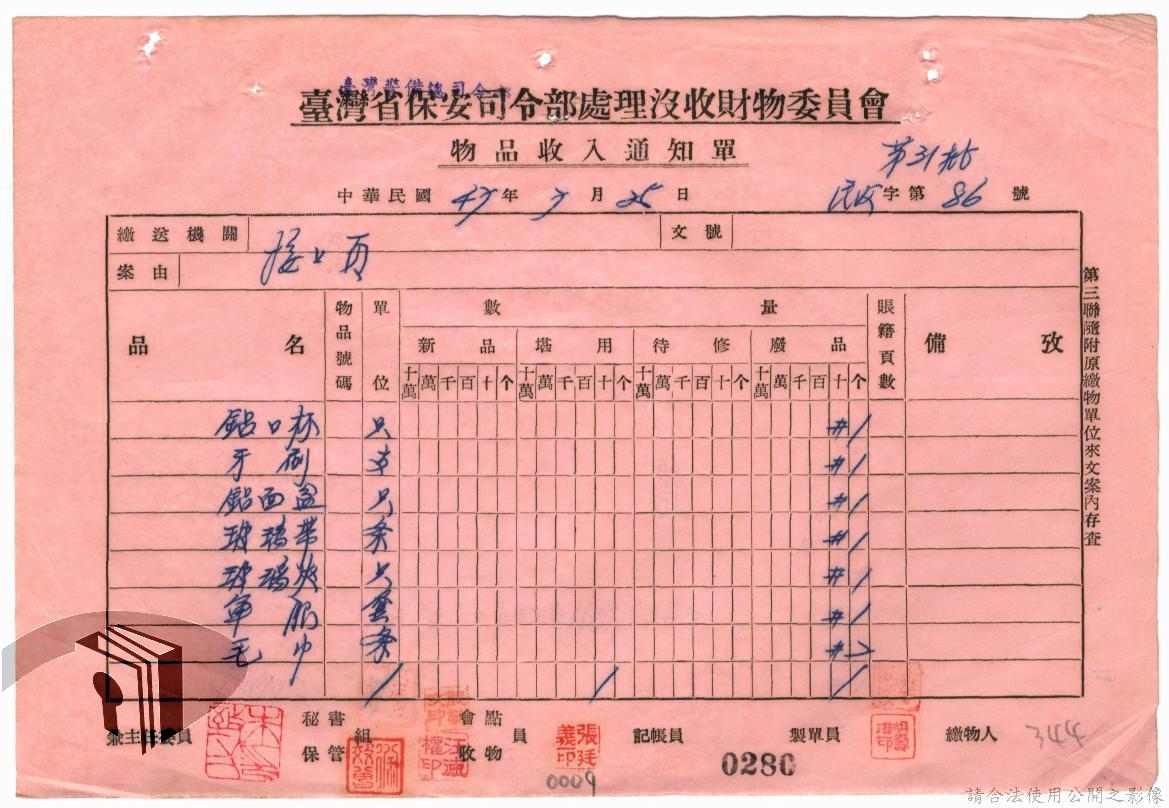 臺灣警備總司令部
臺灣省保安司令部處理沒收財物委員會
物品收入通知單
第31批
中華民國 47年 3月 25日
字第 86 號
繳送機關
文號
案由
接上頁
品名
物品號碼
單位
數量
新品 堪用 待修 廢品
十萬 萬 千 百 十 个 十萬 萬 千 百 十 个 十萬 萬 千 百 十 个 十萬 萬 千 百 十 个
賬籍頁數
備攷
鋁口杯 只 #1
牙刷 支 #1
鋁面盆 只 #1
玻璃帶 条 #1
玻璃 只 #1
軍服 套 #1
毛巾 条 #2
第三聯隨附原繳物單位來文案內存查
兼主任委員
秘書
保管組
會點
收物
員
張廷義印
記帳員
製單員
繳物人
344
0009
0280
請合法使用公開之影像